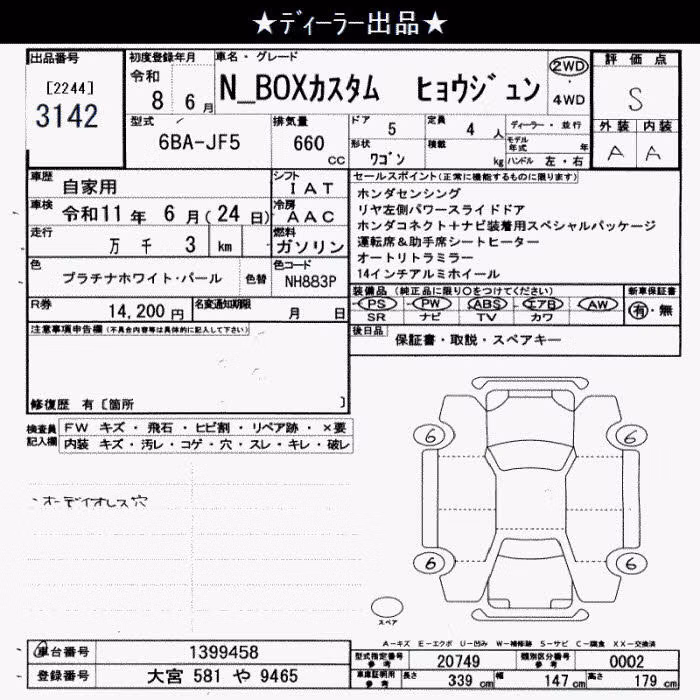 ★ディーラー出品★
出品番号
[2244]
3142
初度登録年月
令和
8 6 月
車名・グレード
N_BOXカスタム ヒョウジュン
2WD
・
4WD
評価点
S
外装 内装
A A
型式
6BA-JF5
排気量
660
CC
ドア
5
定員
4 人
形状
ワゴン
積載
kg
ディーラー・並行
モデル年式 年
ハンドル 左・右
車歴
自家用
シフト
IAT
車検
令和11 年 6 月(24 日)
冷房
AAC
走行
万 千 3 km
燃料
ガソリン
色
プラチナホワイト・パール
色替
色コード
NH883P
R券
14,200 円
名変通知期限
月 日
セールスポイント(正常に機能するものに限ります)
ホンダセンシング
リヤ左側パワースライドドア
ホンダコネクト+ナビ装着用スペシャルパッケージ
運転席&助手席シートヒーター
オートリトラミラー
14インチアルミホイール
装備品 (純正品に限り○をつけてください)
PS PW ABS エアB AW
SR ナビ TV カワ
新車保証書
有・無
後日品
保証書・取説・スペアキー
注意事項申告欄(不具合内容等は具体的に記入して下さい)
修復歴 有〔箇所 〕
検査員記入欄
FW キズ・飛石・ヒビ割・リペア跡・×要
内装 キズ・汚レ・コゲ・穴・スレ・キレ・破レ
・オーディオレス穴
6 6
6 6
スペア
A-キズ E-エクボ U-凹み W-補修跡 S-サビ C-腐食 XX-交換済
車台番号
1399458
登録番号
大宮 581 や 9465
型式指定番号
参考
20749
類別区分番号
参考
0002
車庫証明用
参考
長さ 339 cm 幅 147 cm 高さ 179 cm